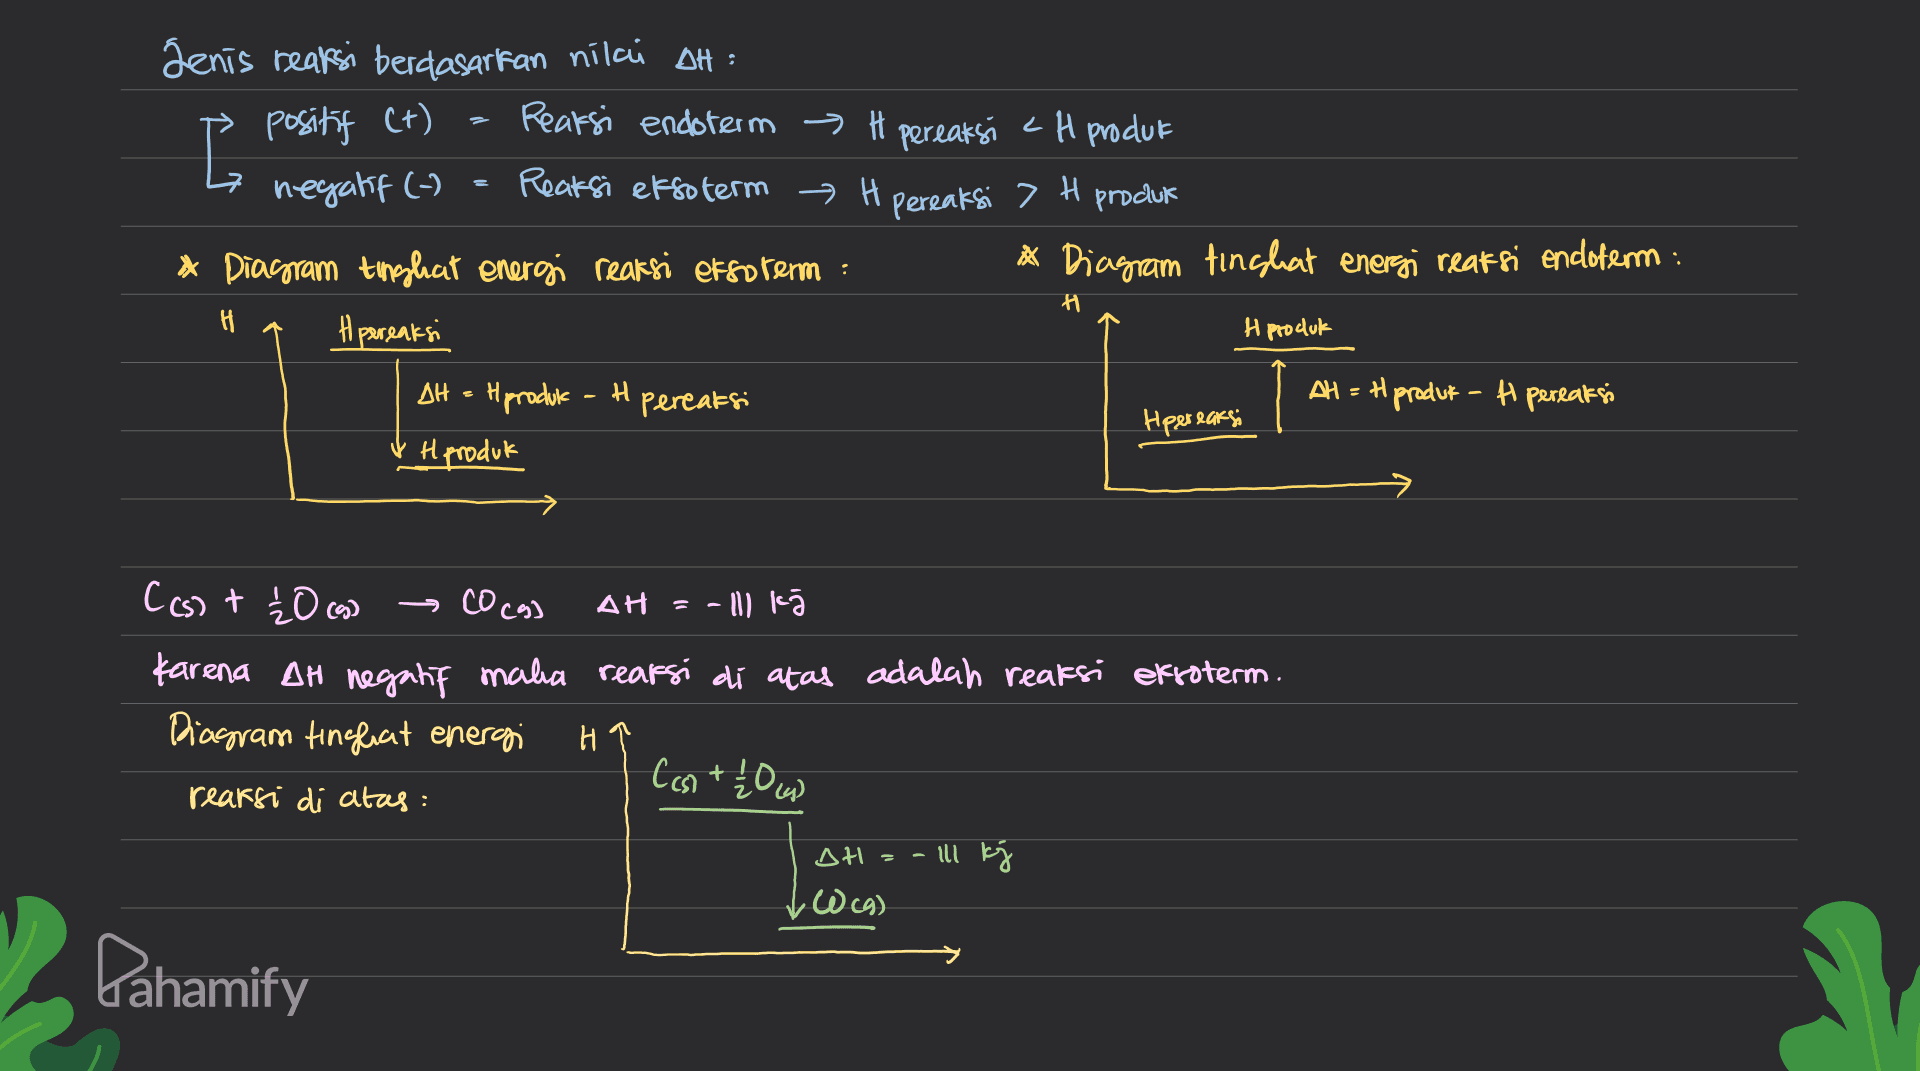 Jenis reaksi berdasarkan nilai ΔH :
positif (+) = Reaksi endoterm → H pereaksi < H produk
negatif (-) = Reaksi eksoterm → H pereaksi > H produk
* Diagram tingkat energi reaksi eksoterm :
H
H pereaksi
ΔH = H produk - H pereaksi
H produk
* Diagram tingkat energi reaksi endoterm :
H
H produk
ΔH = H produk - H pereaksi
H pereaksi
C(s) + ½O(g) → CO(g) ΔH = -111 kJ
karena ΔH negatif maka reaksi di atas adalah reaksi eksoterm.
Diagram tingkat energi
reaksi di atas :
H
C(s) + ½O(g)
ΔH = -111 kJ
CO(g)
Pahamify